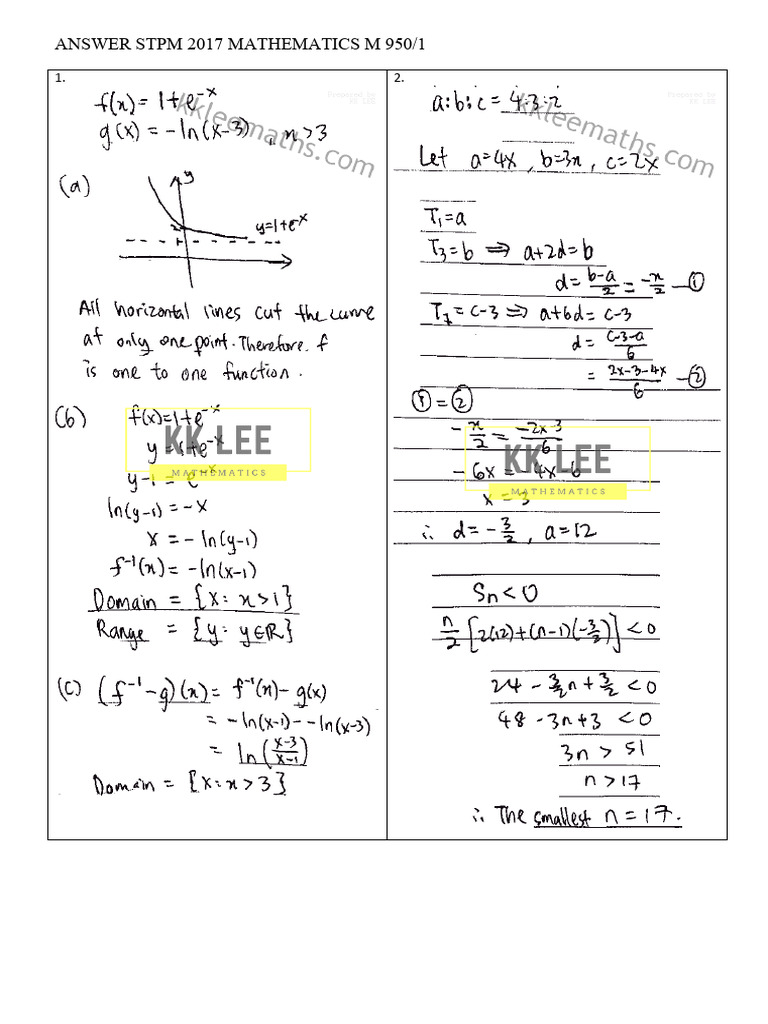 ANSWER STPM 2017 MATHEMATICS M 950/1
1.
Prepared by
KK LEE
kkleemaths.com
f(x) = 1+e^-x
g(x) = -ln(x-3), x>3
(a)
y
2
y=1+e^-x
All horizontal lines cut the curve
at only one point. Therefore f
is one to one function.
(b) f(x)=1+e^-x
y = 1+e^-x
KK LEE
MATHEMATICS
y-1 = e^-x
ln(y-1) = -x
x = -ln(y-1)
f^-1(x) = -ln(x-1)
Domain = {x: x>1}
Range = {y: y∈R}
(c) (f^-1-g)(x) = f^-1(x) - g(x)
= -ln(x-1) - -ln(x-3)
= ln(x-3/x-1)
Domain = {x: x>3}
2.
Prepared by
KK LEE
kkleemaths.com
a:b:c = 4:3:2
Let a=4x, b=3x, c=2x
T1=a
T3=b ⇒ a+2d=b
d = b-a/2 = -x/2 —①
T7=c-3 ⇒ a+6d = c-3
d = c-3-a/6
= 2x-3-4x/6 —②
① = ②
-x/2 = -2x-3/6
KK LEE
MATHEMATICS
-6x = -4x-6
x = 3
∴ d = -3/2, a=12
Sn<0
n/2[2(12)+(n-1)(-3/2)] < 0
24 - 3/2n + 3/2 < 0
48 - 3n+3 < 0
3n > 51
n > 17
∴ The smallest n = 17.